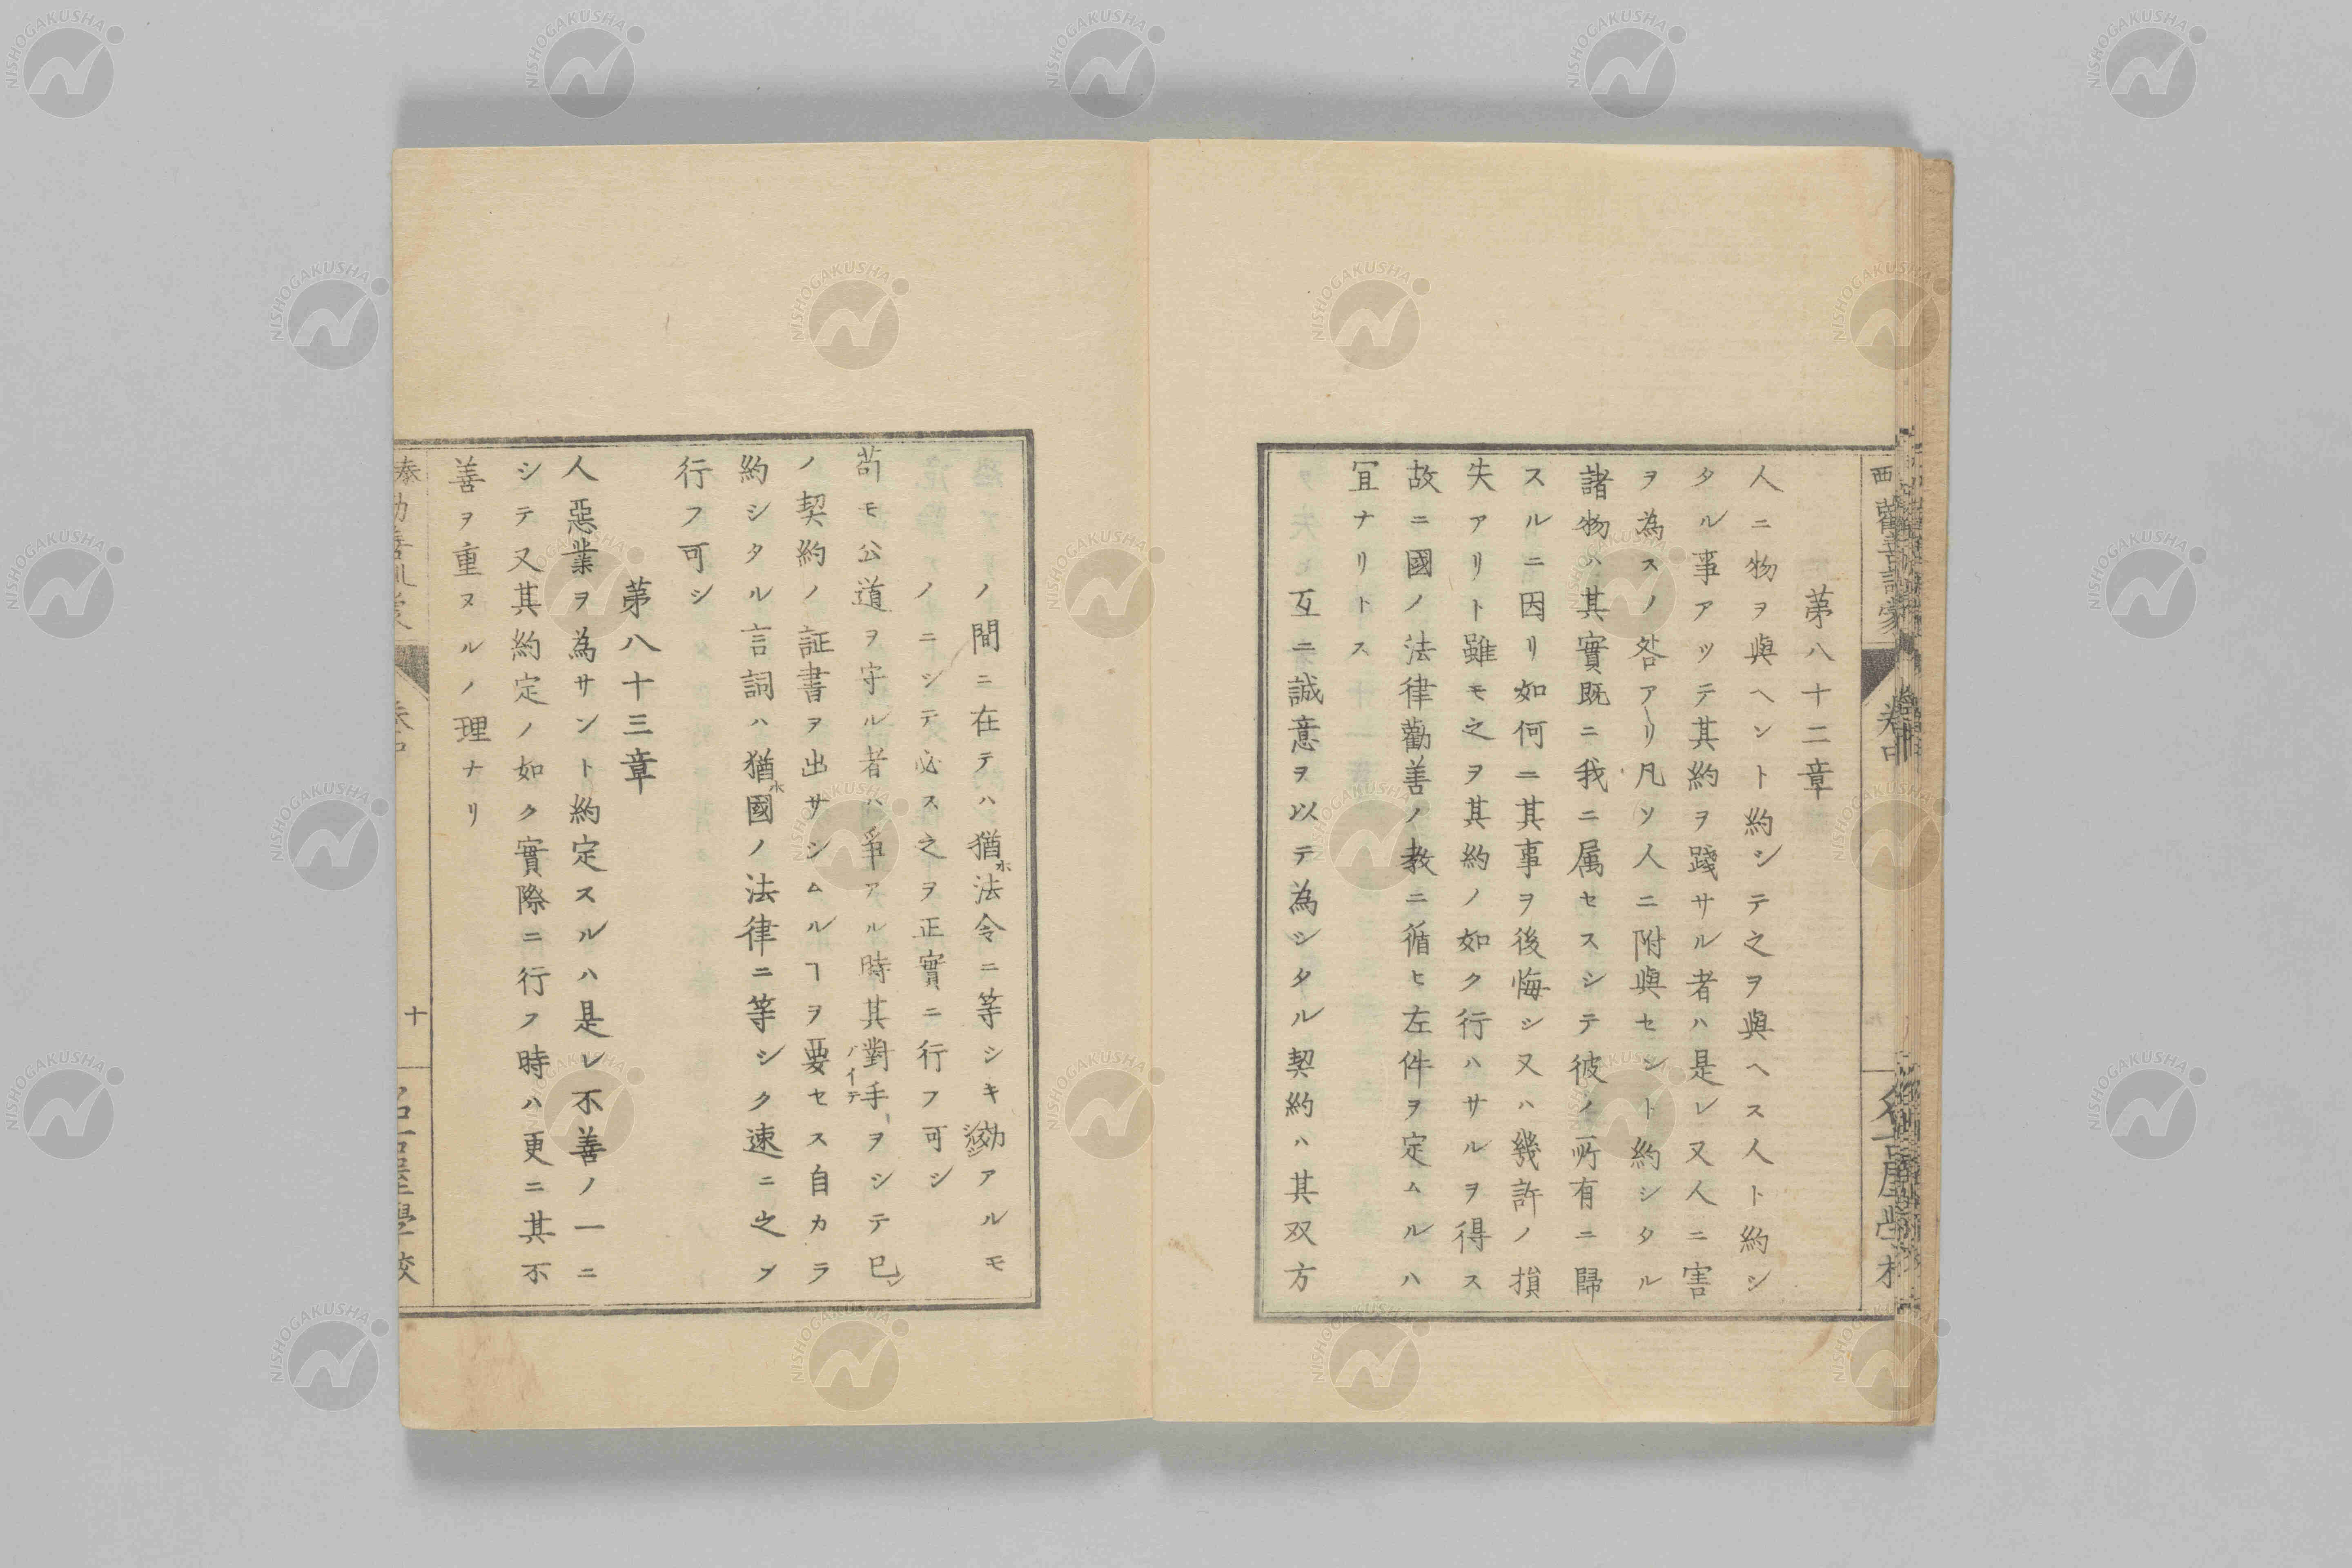 第八十二章
人ニ物ヲ與ヘント約シテ之ヲ與ヘス人ト約シ
タル事アツテ其約ヲ踐サル者ハ是レ又人ニ害
ヲ為スノ咎アリ凡ソ人ニ附與セント約シタル
諸物ハ其實既ニ我ニ属セスシテ彼ノ所有ニ歸
スルニ因リ如何ニ其事ヲ後悔シ又ハ幾許ノ損
失アリト雖モ之ヲ其約ノ如ク行ハサルヲ得ス
故ニ國ノ法律勸善ノ教ニ循ヒ左件ヲ定ムルハ
宜ナリトス
互ニ誠意ヲ以テ為シタル契約ハ其双方
ノ間ニ在テハ猶ホ法令ニ等シキ効シルシアルモ
ノニシテ必ス之ヲ正實ニ行フ可シ
苟モ公道ヲ守ル者ハ爭アル時其對手ヲシテ已レ
ノ契約ノ証書ヲ出サシムルヿヲ要セス自カラ
約シタル言詞ハ猶ホ國ノ法律ニ等シク速ニ之ヲ
行フ可シ
第八十三章
人惡業ヲ為サント約定スルハ是レ不善ノ一ニ
シテ又其約定ノ如ク實際ニ行フ時ハ更ニ其不
善ヲ重ヌルノ理ナリ
十
NISHOGAKUSHA